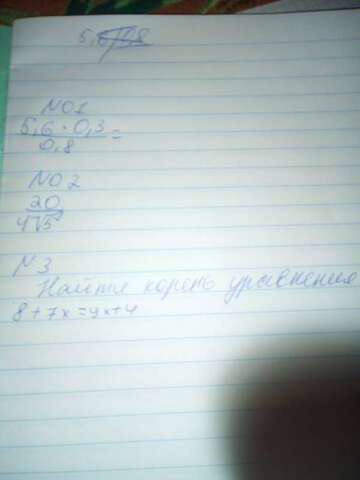 NO1
5,6 · 0,3 =
0,8
NO2
20
4√5
N3
Найти корень уравнения
8+7x=4x+4